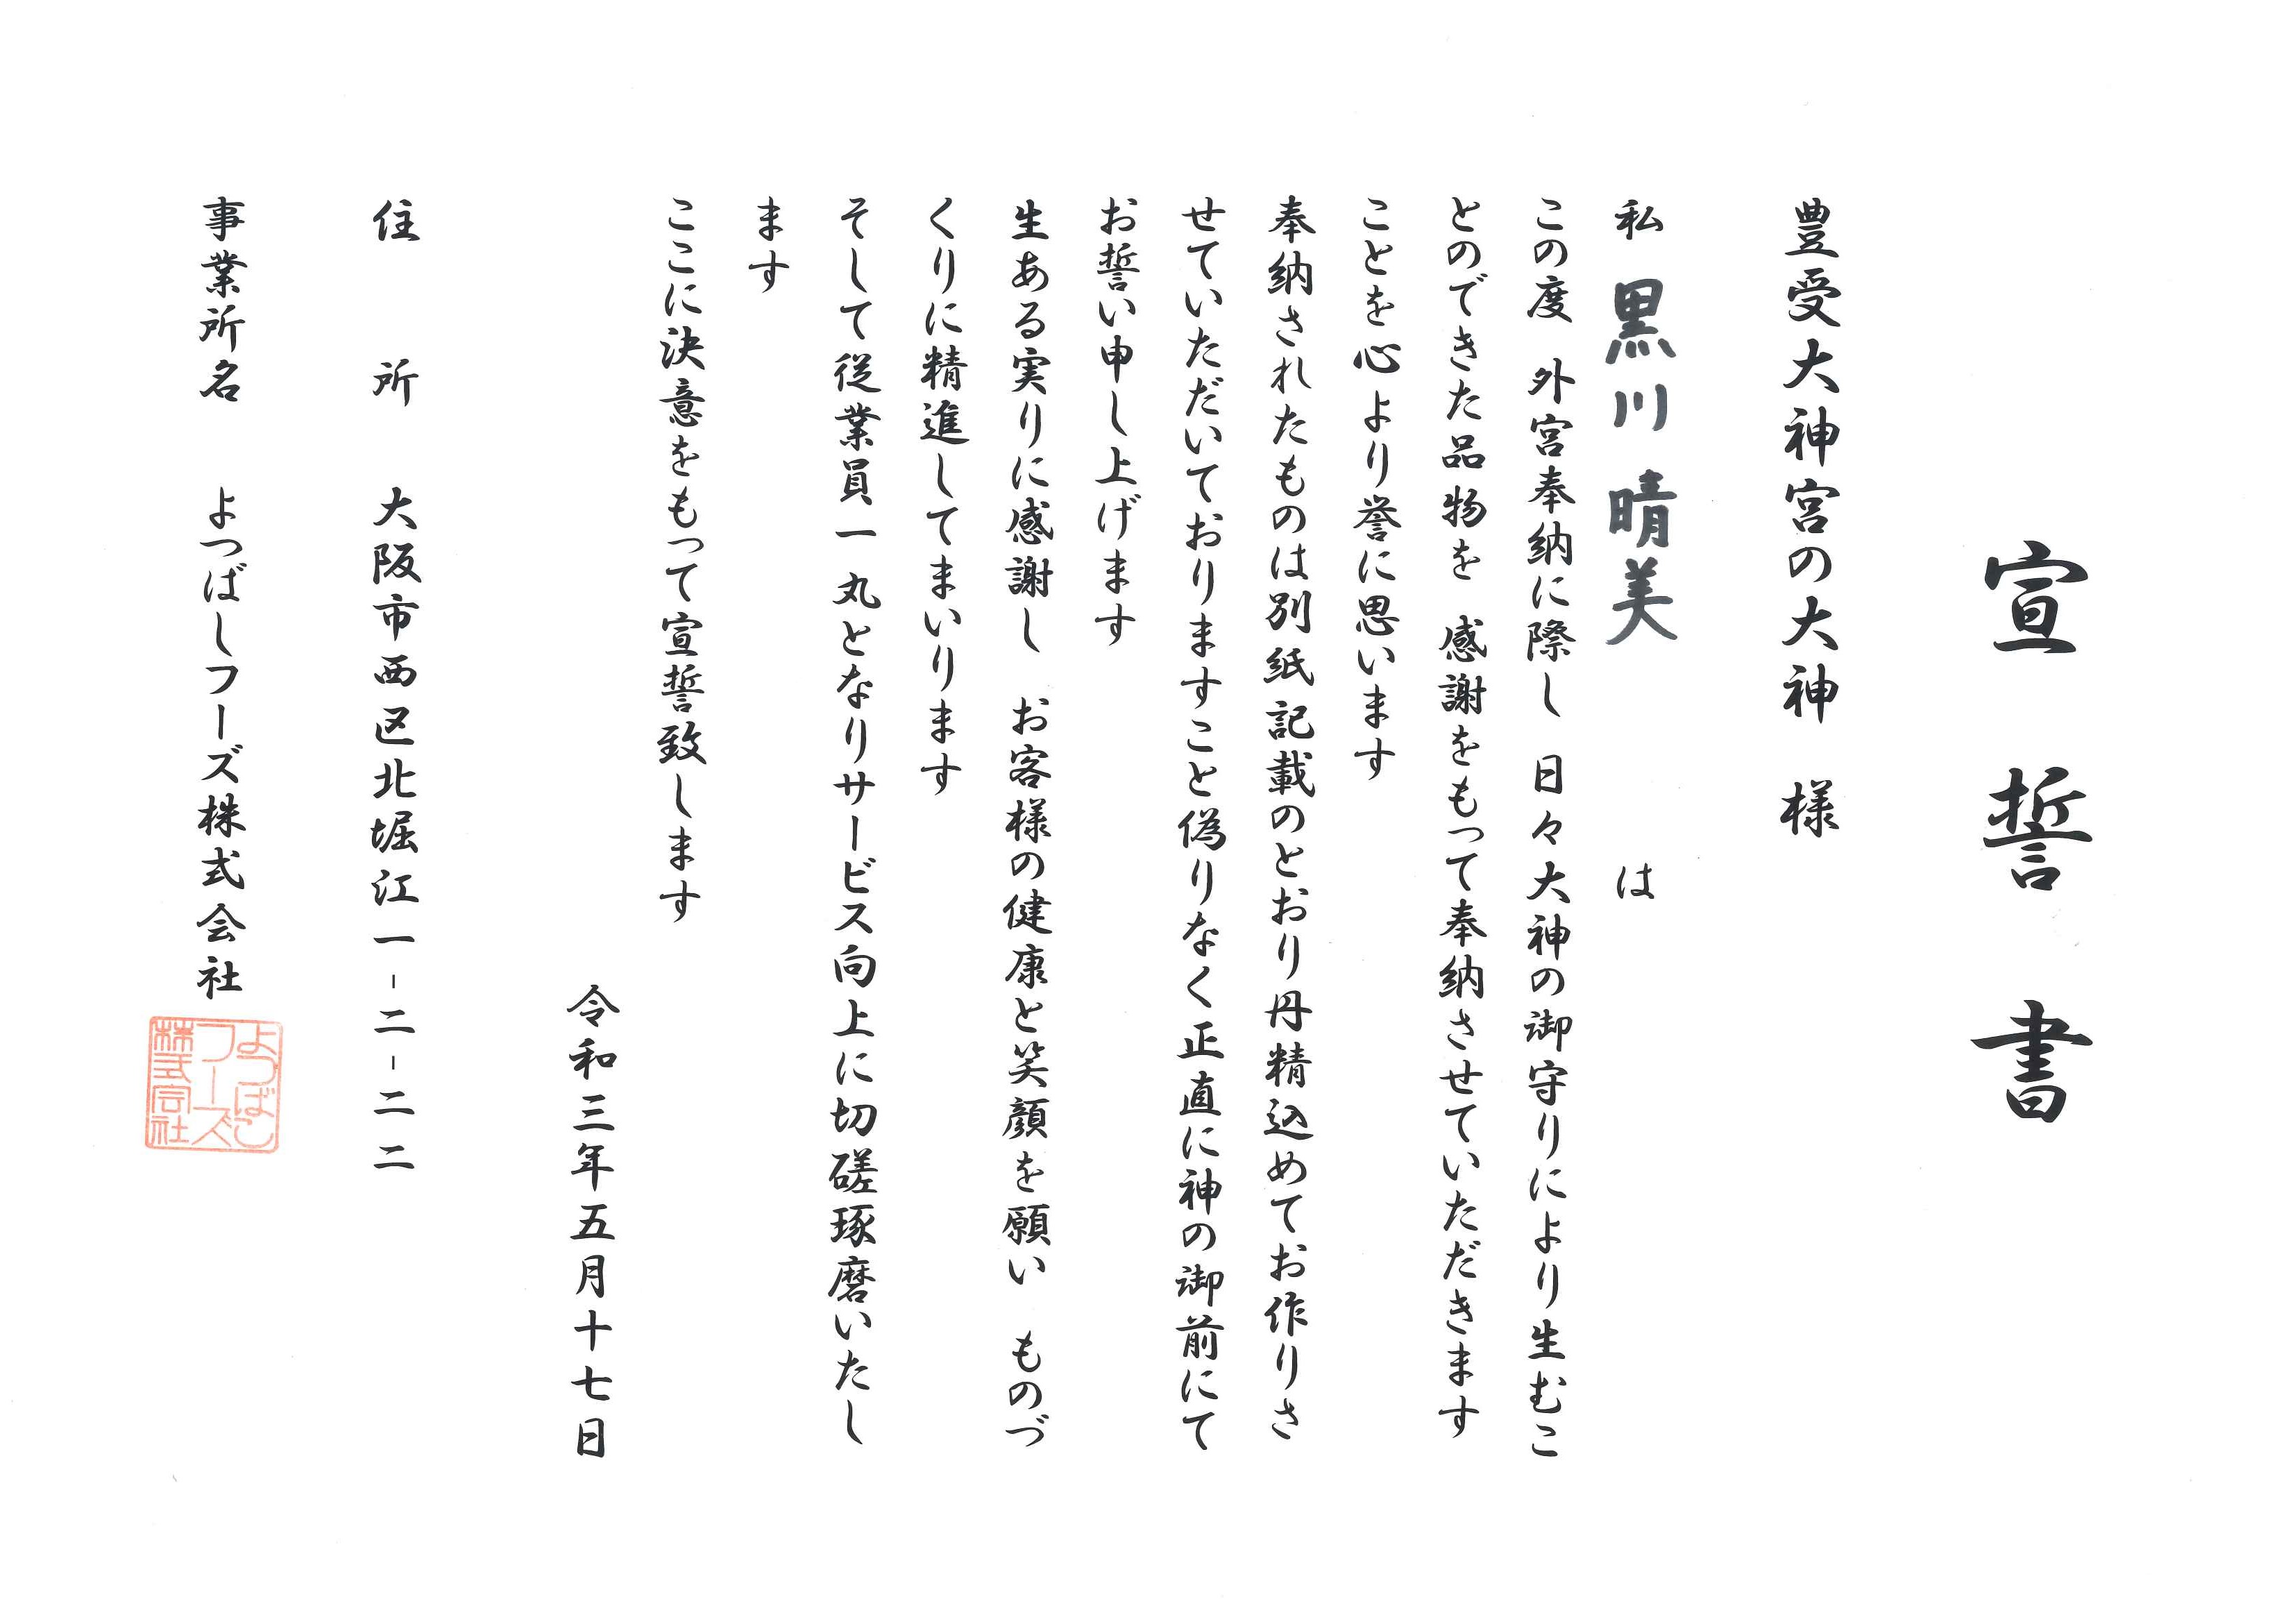 宣誓書
豊受大神宮の大神　様
私　黒川　晴美　は
この度　外宮奉納に際し　日々大神の御守りにより生むこ
とのできた品物を　感謝をもって奉納させていただきます
ことを心より誉に思います
奉納されたものは別紙記載のとおり丹精込めてお作りさ
せていただいておりますこと偽りなく正直に神の御前にて
お誓い申し上げます
生ある実りに感謝し　お客様の健康と笑顔を願い　ものづ
くりに精進してまいります
そして従業員一丸となりサービス向上に切磋琢磨いたし
ます
ここに決意をもって宣誓致します
令和三年五月十七日
住　所　大阪市西区北堀江一-二-二二
事業所名　よつばしフーズ株式会社
よつばし
フーズ
株式会社